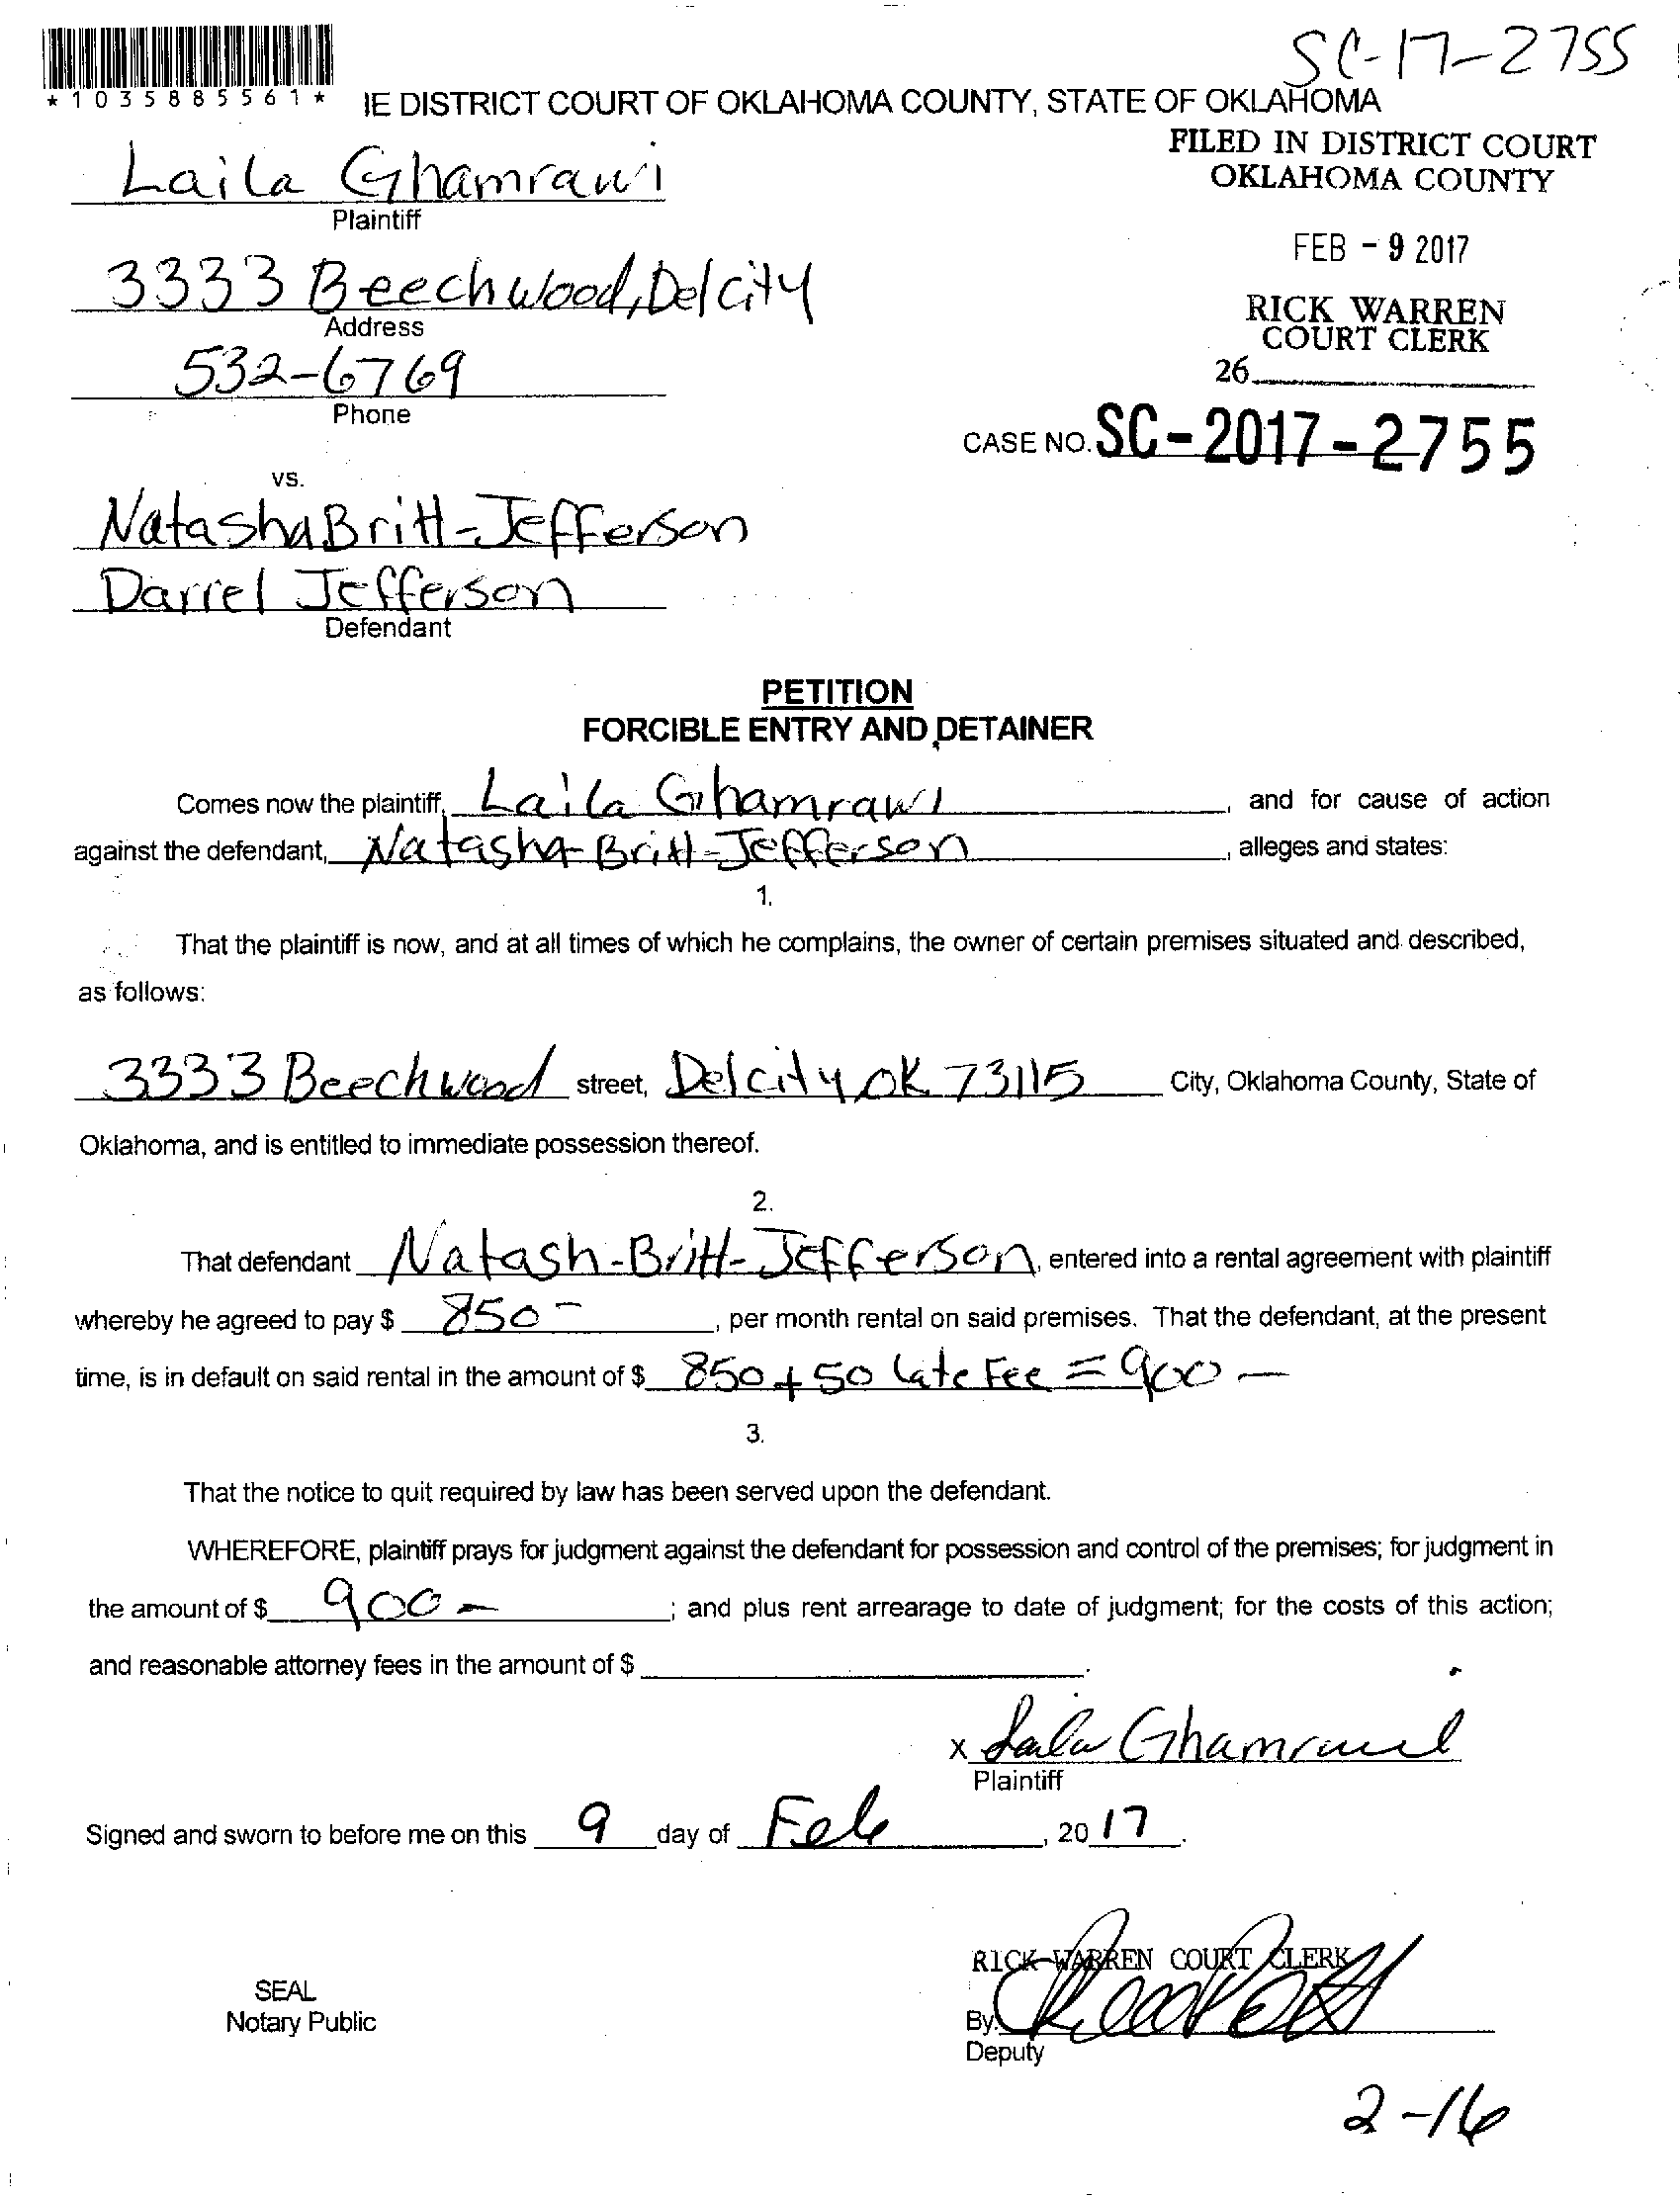 SC-17-2755
*1035885561*
IE DISTRICT COURT OF OKLAHOMA COUNTY, STATE OF OKLAHOMA
FILED IN DISTRICT COURT
OKLAHOMA COUNTY
Laila Ghamrawi
Plaintiff
FEB - 9 2017
3333 Beechwood, Delcity
Address
RICK WARREN
COURT CLERK
532-6769
Phone
26
CASE NO. SC-2017-2755
vs.
Natasha Britt-Jefferson
Darrel Jefferson
Defendant
PETITION
FORCIBLE ENTRY AND DETAINER
Comes now the plaintiff, Laila Ghamrawi, and for cause of action
against the defendant, Natasha-Britt-Jefferson, alleges and states:
1.
That the plaintiff is now, and at all times of which he complains, the owner of certain premises situated and described,
as follows:
3333 Beechwood street, Delcity OK 73115 City, Oklahoma County, State of
Oklahoma, and is entitled to immediate possession thereof.
2.
That defendant Natash-Britt-Jefferson, entered into a rental agreement with plaintiff
whereby he agreed to pay $ 850-, per month rental on said premises. That the defendant, at the present
time, is in default on said rental in the amount of $ 850 + 50 Late Fee = 900 -
3.
That the notice to quit required by law has been served upon the defendant.
WHEREFORE, plaintiff prays for judgment against the defendant for possession and control of the premises; for judgment in
the amount of $ 900 -; and plus rent arrearage to date of judgment; for the costs of this action;
and reasonable attorney fees in the amount of $ .
x Laila Ghamrawi
Plaintiff
Signed and sworn to before me on this 9 day of Feb, 2017.
RICK WARREN COURT CLERK
SEAL
Notary Public
By:
Deputy
2-16